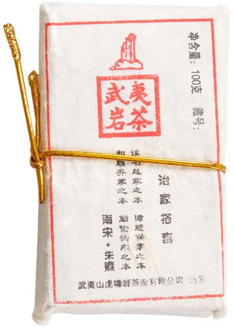 净含量：100克 藏号：
武夷
岩茶
治家格言
读书起家之本 循理保家之本
和顺齐家之本 勤俭治家之本
南宋·朱熹
武夷山虎啸岩茶业有限公司 出品